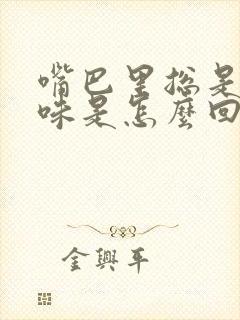 嘴巴里总是
味是怎麼回
金興平